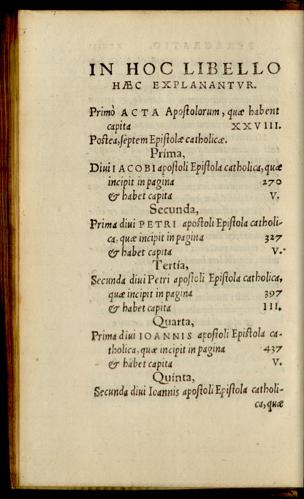 IN HOC LIBELLO
HÆC EXPLANANTVR.
Primò ACTA Apostolorum, quæ habent
capita XXVIII.
Postea, septem Epistolæ catholicæ.
Prima,
Diui IACOBI apostoli Epistola catholica, quæ
incipit in pagina 270
& habet capita V.
Secunda,
Prima diui PETRI apostoli Epistola catholi-
ca, quæ incipit in pagina 327
& habet capita V.
Tertia,
Secunda diui Petri apostoli Epistola catholica,
quæ incipit in pagina 397
& habet capita III.
Quarta,
Prima diui IOANNIS apostoli Epistola ca-
tholica, quæ incipit in pagina 437
& habet capita V.
Quinta,
Secunda diui Ioannis apostoli Epistola catholi-
ca, quæ